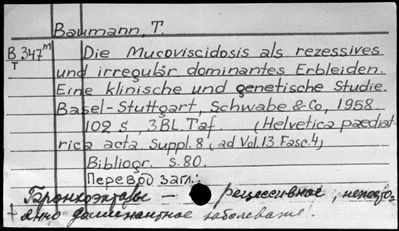 Baumann, T.
B 347m Die Mucoviscidosis als rezessives
T und irregulär dominantes Erbleiden.
Eine klinische und genetische Studie.
Basel-Stuttgart, Schwabe & Co, 1958
102 S., 3BL.Taf. (Helvetica paediat-
rica acta. Suppl. 8 (ad Vol.13 Fasc.4)
Bibliogr. S.80.
Перевод загл.:
рецессивное,
доминантное заболевание.